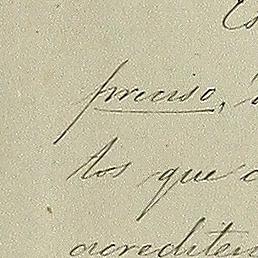 Es
preciso,
tos que
acrediten